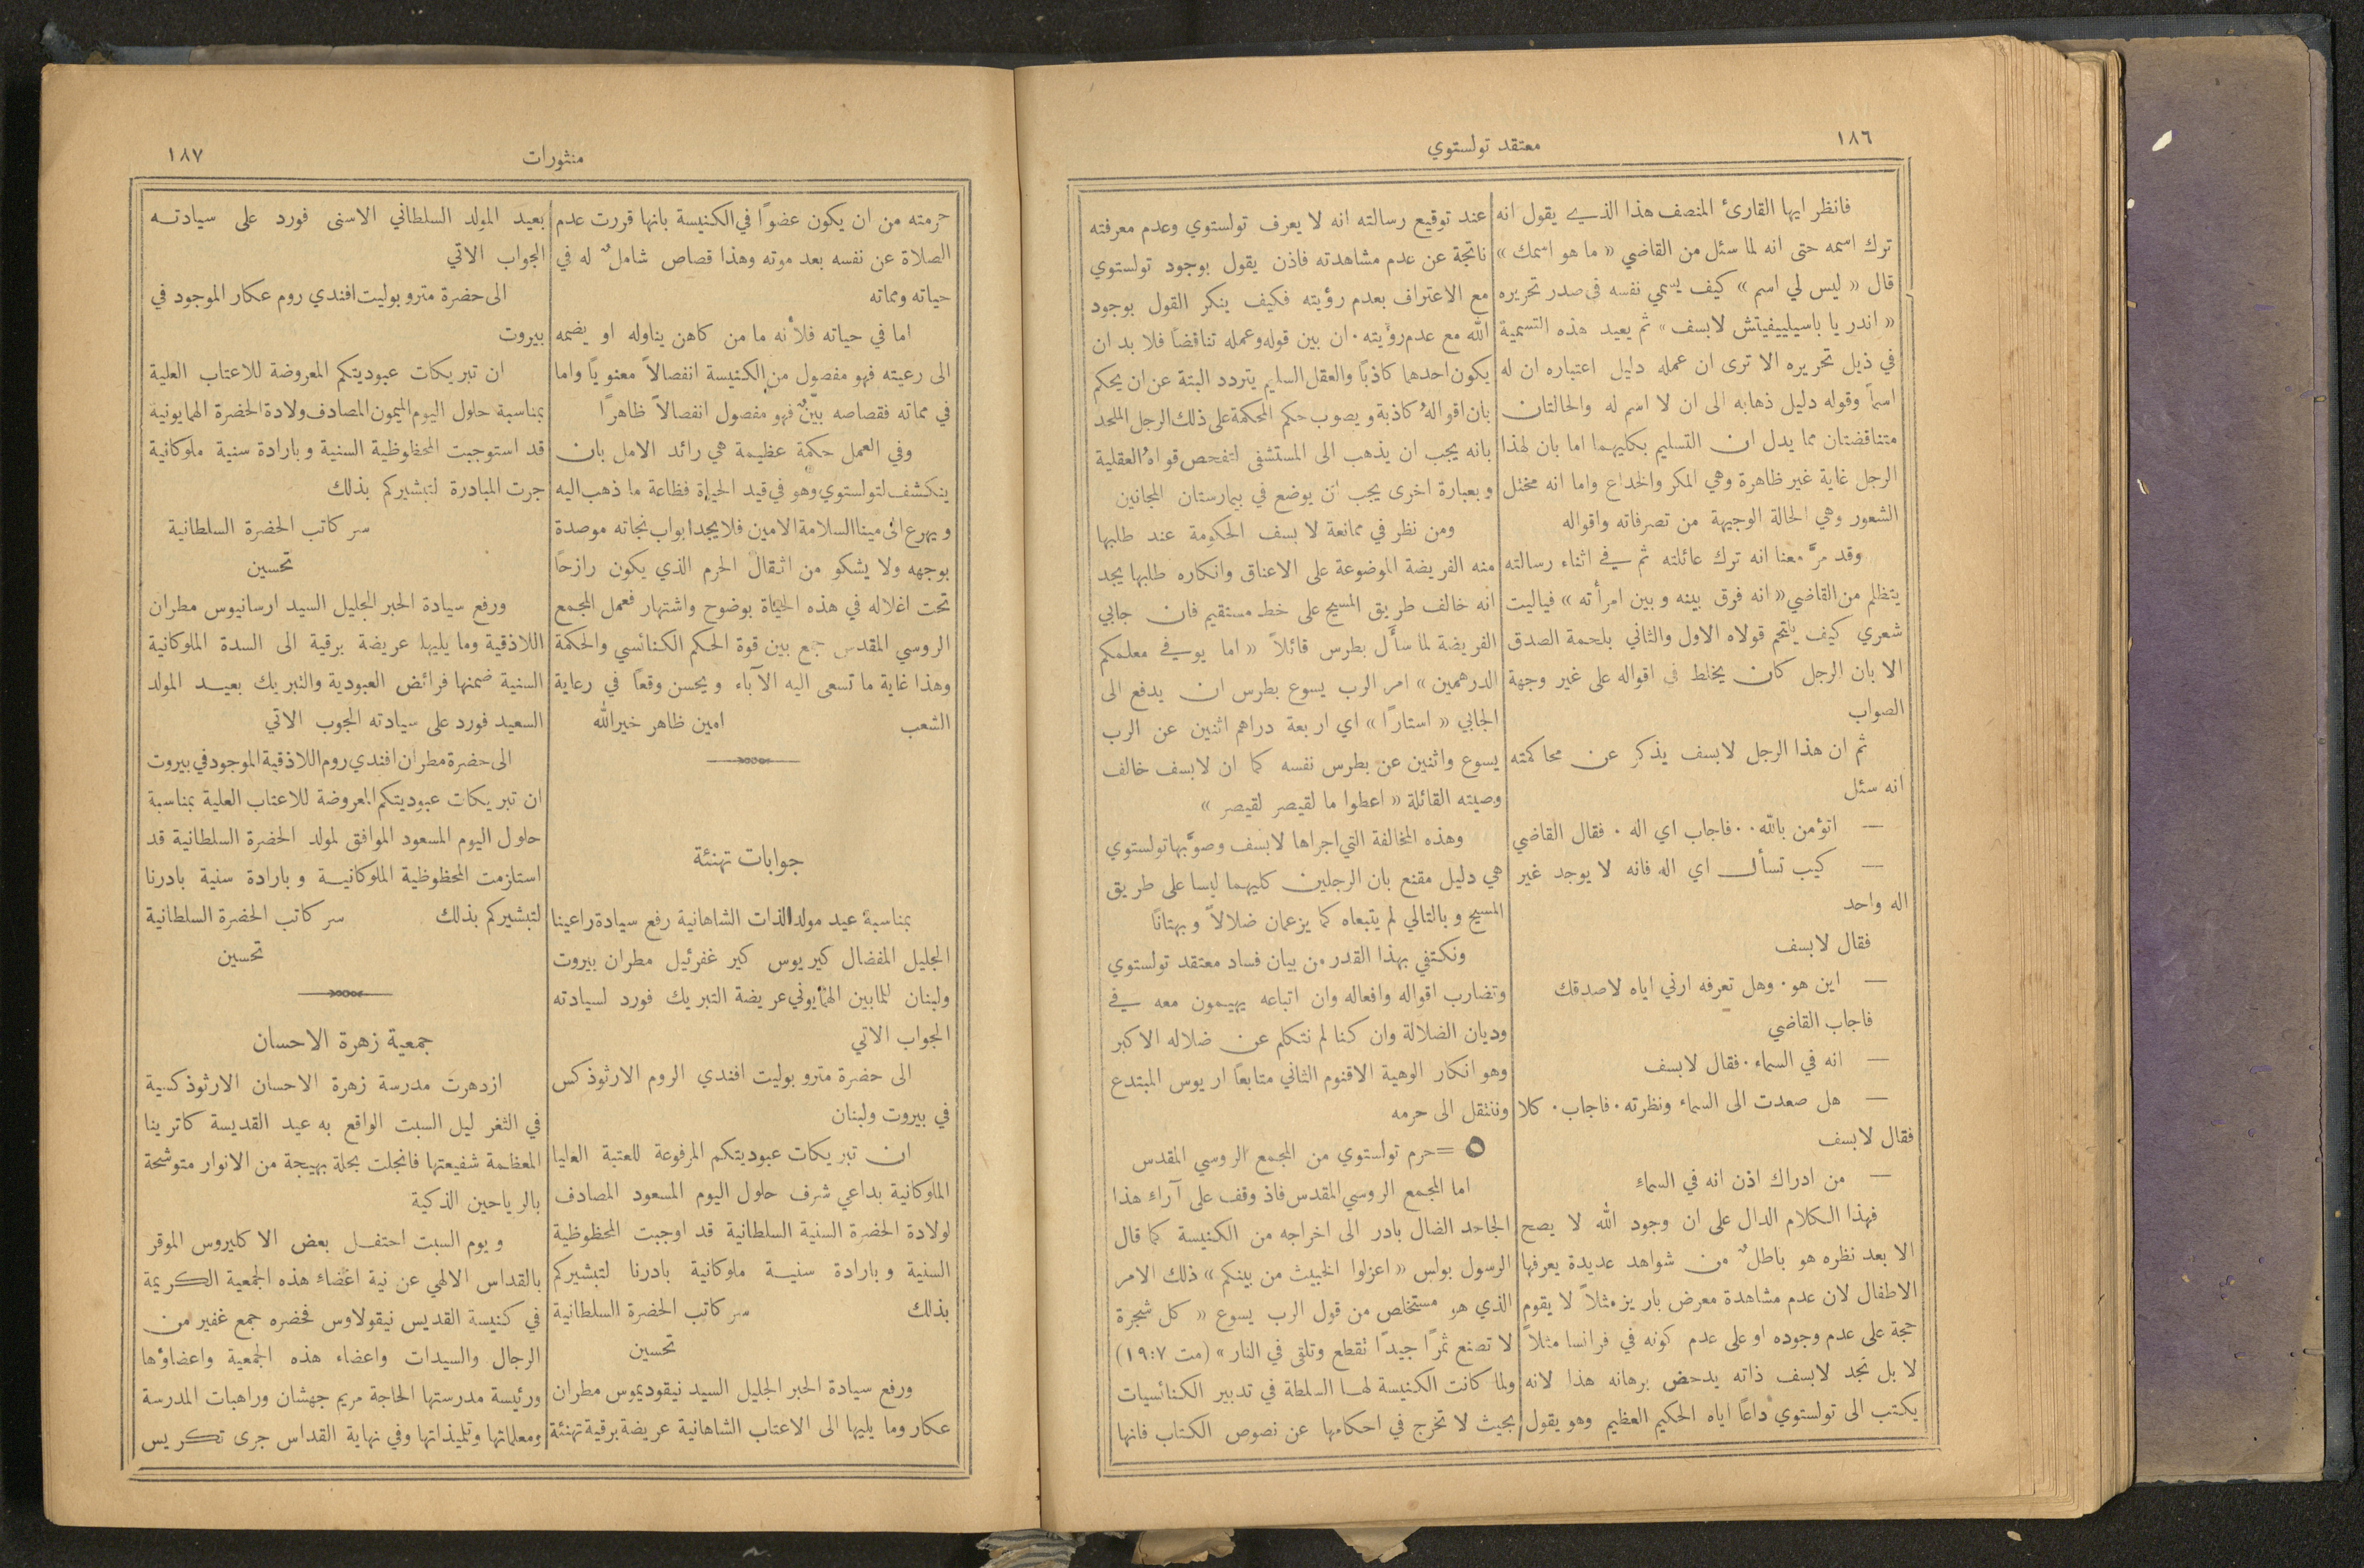 ١٨٦
معتقد تولستوي
فانظر ايها القارئ المنصف هذا الذي يقول انه
ترك اسمه حتى انه لما سئل من القاضي « ما هو اسمك »
قال « ليس لي اسم » كيف يسمي نفسه في صدر تحريره
« اندر يا باسيلييفيتش لابسف » ثم يعيد هذه التسمية
في ذيل تحريره الا ترى ان عمله دليل اعتباره ان له
اسماً وقوله دليل ذهابه الى ان لا اسم له والحالتان
متناقضتان مما يدل ان التسليم بكليهما اما بان لهذا
الرجل غاية غير ظاهرة وهي المكر والخداع واما انه مختل
الشعور وهي الحالة الوجيهة من تصرفاته واقواله
وقد مرَّ معنا انه ترك عائلته ثم في اثناء رسالته
يتظلم من القاضي « انه فرق بينه وبين امرأته » فياليت
شعري كيف يلتحم قولاه الاول والثاني بلحمة الصدق
الا بان الرجل كان يخلط في اقواله على غير وجهة
الصواب
ثم ان هذا الرجل لابسف يذكر عن محاكمته
انه سئل
— اتؤمن بالله ٠٠ فاجاب اي اله ٠ فقال القاضي
— كيب تسأل اي اله فانه لا يوجد غير
اله واحد
فقال لابسف
— اين هو ٠ وهل تعرفه ارني اياه لاصدقك
فاجاب القاضي
— انه في السماء ٠ فقال لابسف
— هل صعدت الى السماء ونظرته ٠ فاجاب ٠ كلا
فقال لابسف
— من ادراك اذن انه في السماء
فهذا الكلام الدال على ان وجود الله لا يصح
الا بعد نظره هو باطلٌ من شواهد عديدة يعرفها
الاطفال لان عدم مشاهدة معرض باريز مثلاً لا يقوم
حجة على عدم وجوده او على عدم كونه في فرانسا مثلاً
لا بل نجد لابسف ذاته يدحض برهانه هذا لانه
يكتب الى تولستوي داعاً اياه الحكيم العظيم وهو يقول
عند توقيع رسالته انه لا يعرف تولستوي وعدم معرفته
ناتجة عن عدم مشاهدته فاذن يقول بوجود تولستوي
مع الاعتراف بعدم رؤيته فكيف ينكر القول بوجود
الله مع عدم رؤيته ٠ ان بين قوله وعمله تناقضاً فلا بد ان
يكون احدهما كاذباً والعقل السليم يتردد البتة عن ان يحكم
بان اقواله كاذبة ويصوب حكم المحكمة على ذلك الرجل الملحد
بانه يجب ان يذهب الى المستشفى لتفحص قواه العقلية
وبعبارة اخرى يجب ان يوضع في بيمارستان المجانين
ومن نظر في ممانعة لابسف الحكومة عند طلبها
منه الفريضة الموضوعة على الاعناق وانكاره طلبها يجد
انه خالف طريق المسيح على خط مستقيم فان جابي
الفريضة لما سأَل بطرس قائلاً « اما يوفي معلمكم
الدرهمين » امر الرب يسوع بطرس ان يدفع الى
الجابي « استارًا » اي اربعة دراهم اثنين عن الرب
يسوع واثنين عن بطرس نفسه كما ان لابسف خالف
وصيته القائلة « اعطوا ما لقيصر لقيصر »
وهذه المخالفة التي اجراها لابسف وصوَّبها تولستوي
هي دليل مقنع بان الرجلين كليهما ليسا على طريق
المسيح وبالتالي لم يتبعاه كما يزعمان ضلالاً وبهتانًا
ونكتفي بهذا القدر من بيان فساد معتقد تولستوي
وتضارب اقواله وافعاله وان اتباعه يهيمون معه في
وديان الضلالة وان كنا لم نتكلم عن ضلاله الاكبر
وهو انكار الوهية الاقنوم الثاني متابعاً اريوس المبتدع
وننتقل الى حرمه
٥ = حرم تولستوي من المجمع الروسي المقدس
اما المجمع الروسي المقدس فاذ وقف على آراء هذا
الجاحد الضال بادر الى اخراجه من الكنيسة كما قال
الرسول بولس « اعزلوا الخبيث من بينكم » ذلك الامر
الذي هو مستخلص من قول الرب يسوع « كل شجرة
لا تصنع ثمرًا جيدًا تقطع وتلقى في النار » (مت ٧:١٩)
ولما كانت الكنيسة لها السلطة في تدبير الكنائسيات
بحيث لا تخرج في احكامها عن نصوص الكتاب فانها
منثورات
١٨٧
حرمته من ان يكون عضوًا في الكنيسة بانها قررت عدم
الصلاة عن نفسه بعد موته وهذا قصاص شاملٌ له في
حياته ومماته
اما في حياته فلأنه ما من كاهن يناوله او يضمه
الى رعيته فهو مفصول من الكنيسة انفصالاً معنوياً واما
في مماته فقصاصه بيّنٌ فهو مفصول انفصالاً ظاهرًا
وفي العمل حكمة عظيمة هي رائد الامل بان
ينكشف لتولستوي وهو في قيد الحياة فظاعة ما ذهب اليه
ويهرع الى مينا السلامة الامين فلا يجد ابواب نجاته موصدة
بوجهه ولا يشكو من اثقال الحرم الذي يكون رازحًا
تحت اغلاله في هذه الحياة بوضوح واشتهار فعمل المجمع
الروسي المقدس جمع بين قوة الحكم الكنائسي والحكمة
وهذا غاية ما تسعى اليه الآباء ويحسن وقعاً في رعاية
الشعب امين ظاهر خيرالله
جوابات تهنئة
بمناسبة عيد مولد الذات الشاهانية رفع سيادة راعينا
الجليل المفضال كيريوس كير غفرئيل مطران بيروت
ولبنان للمابين الهمايوني عريضة التبريك فورد لسيادته
الجواب الاتي
الى حضرة متروبوليت افندي الروم الارثوذكس
في بيروت ولبنان
ان تبريكات عبوديتكم المرفوعة للعتبة العليا
الملوكانية بداعي شرف حلول اليوم المسعود المصادف
لولادة الحضرة السنية السلطانية قد اوجبت المحظوظية
السنية وبارادة سنية ملوكانية بادرنا لتبشيركم
بذلك سر كاتب الحضرة السلطانية
تحسين
ورفع سيادة الحبر الجليل السيد نيقوديموس مطران
عكار وما يليها الى الاعتاب الشاهانية عريضة برقية تهنئة
بعيد المولد السلطاني الاسنى فورد على سيادته
الجواب الاتي
الى حضرة متروبوليت افندي روم عكار الموجود في
بيروت
ان تبريكات عبوديتكم المعروضة للاعتاب العلية
بمناسبة حلول اليوم الميمون المصادف ولادة الحضرة الهمايونية
قد استوجبت المحظوظية السنية وبارادة سنية ملوكانية
جرت المبادرة لتبشيركم بذلك
سر كاتب الحضرة السلطانية
تحسين
ورفع سيادة الحبر الجليل السيد ارسانيوس مطران
اللاذقية وما يليها عريضة برقية الى السدة الملوكانية
السنية ضمنها فرائض العبودية والتبريك بعيد المولد
السعيد فورد على سيادته الجوب الاتي
الى حضرة مطران افندي روم اللاذقية الموجود في بيروت
ان تبريكات عبوديتكم المعروضة للاعتاب العلية بمناسبة
حلول اليوم المسعود الموافق لمولد الحضرة السلطانية قد
استلزمت المحظوظية الملوكانية وبارادة سنية بادرنا
لتبشيركم بذلك سر كاتب الحضرة السلطانية
تحسين
جمعية زهرة الاحسان
ازدهرت مدرسة زهرة الاحسان الارثوذكسية
في الثغر ليل السبت الواقع به عيد القديسة كاترينا
المعظمة شفيعتها فانجلت بحلة بهيجة من الانوار متوشحة
بالرياحين الذكية
ويوم السبت احتفل بعض الاكليروس الموقر
بالقداس الالهي عن نية اعضاء هذه الجمعية الكريمة
في كنيسة القديس نيقولاوس فحضره جمع غفير من
الرجال والسيدات واعضاء هذه الجمعية واعضاؤها
ورئيسة مدرستها الحاجة مريم جهشان وراهبات المدرسة
ومعلماتها وتلميذاتها وفي نهاية القداس جرى تكريس